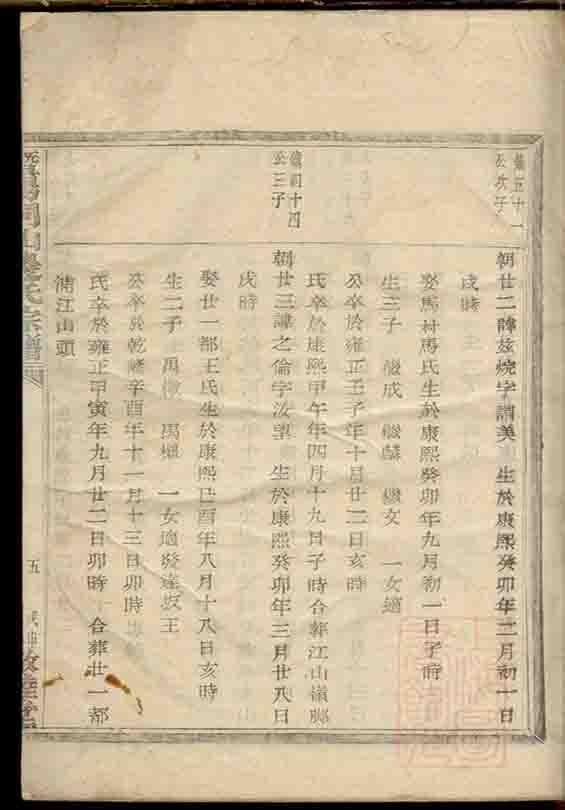 儀五十一
公次子
朝廿二諱茲燒字謂美 生於康熙癸卯年二月初一日
戌時
娶馬村馬氏生於康熙癸卯年九月初一日子時
生三子 儀成 儀麟 儀文 一女適
公卒於雍正壬子年十月廿二日亥時
氏卒於康熙甲午年四月十九日子時合葬江山嶺腳
儀四十四
公三子
朝廿三諱之倫字汝望 生於康熙癸卯年三月廿八日
戌時
娶廿一都王氏生於康熙己酉年八月十八日亥時
生二子 禹 禹 一女適發達坂王
公卒於乾隆辛酉年十一月十三日卯時
氏卒於雍正甲寅年九月廿二日卯時 合葬廿一都
浦江山頭
同山 氏宗譜
五
敦睦堂